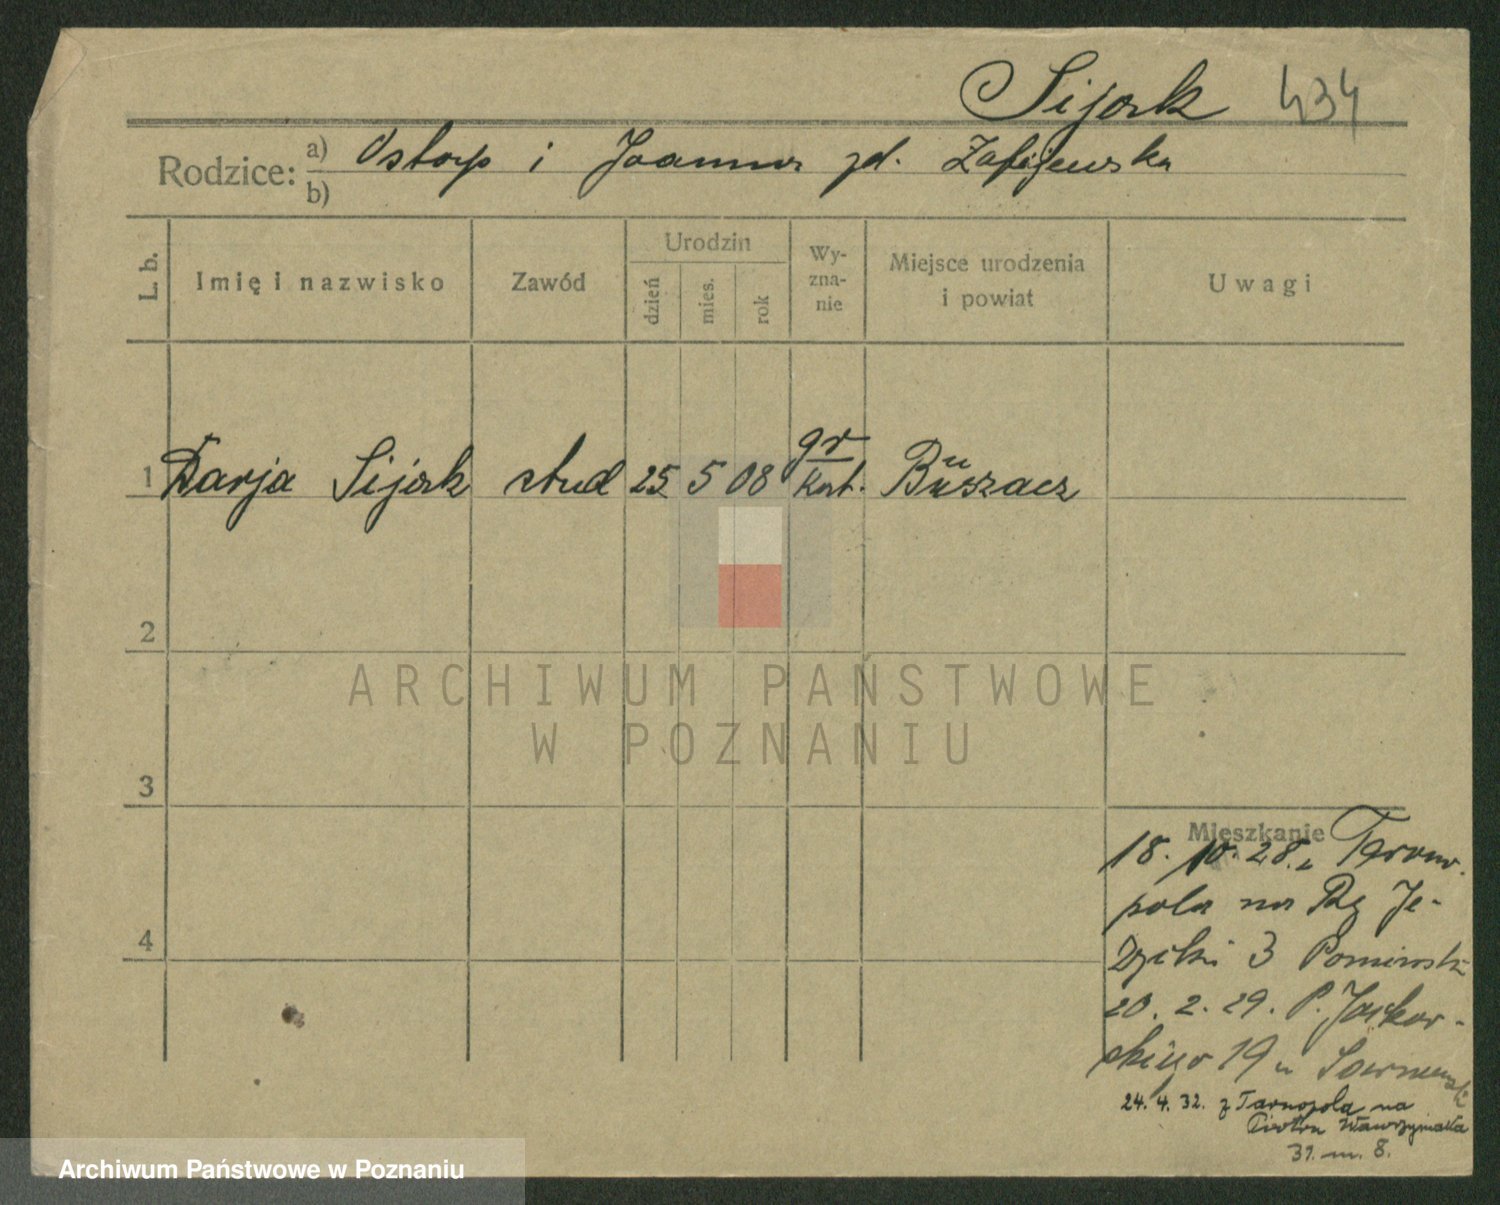 Sijak 434
Rodzice: a) Ostap i Joanna zd.
b)
L. b. Imię i nazwisko Zawód Urodzin dzień mies. rok Wy-zna-nie Miejsce urodzenia i powiat Uwagi
1 Darja Sijak stud 25 5 08 gr kat. Buszacz
2
ARCHIWUM PAŃSTWOWE
W POZNANIU
3
Mieszkanie
18. 10. 28. z Tarno-
pola na Pl Je-
życki 3
4
20. 2. 29. P. Jackow-
skiego 19 u
24. 4. 32. z Tarnopola na
Piotra Wawrzyniaka
31. m. 8.
Archiwum Państwowe w Poznaniu